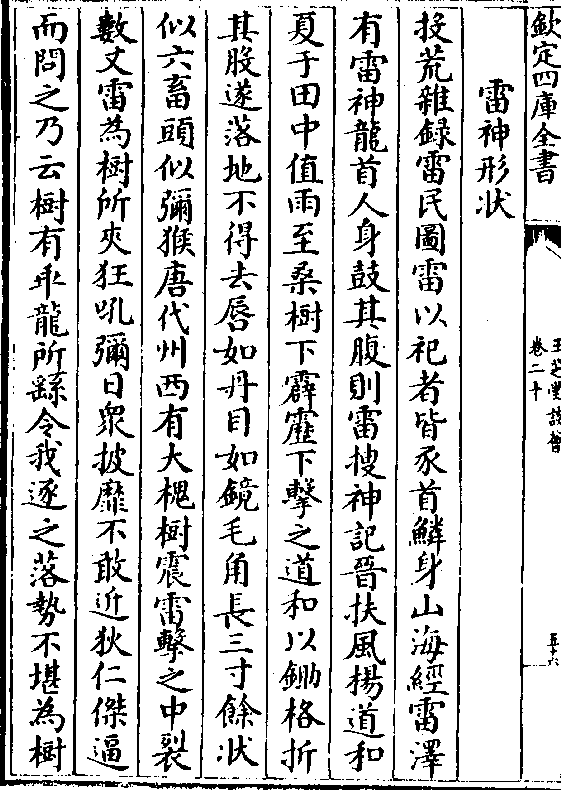 欽定四庫全書
玉芝堂談薈
卷二十
五十六
雷神形狀
投荒雜録雷民圖雷以祀者皆豕首鱗身山海經雷澤
有雷神龍首人身鼓其腹則雷搜神記晉扶風楊道和
夏于田中值雨至桑樹下霹靂下擊之道和以鋤格折
其股遂落地不得去唇如丹目如鏡毛角長三寸餘狀
似六畜頭似彌猴唐代州西有大槐樹震雷擊之中裂
數丈雷為樹所夾狂吼彌日衆披靡不敢近狄仁傑逼
而問之乃云樹有乖龍所繇令我逐之落勢不堪為樹